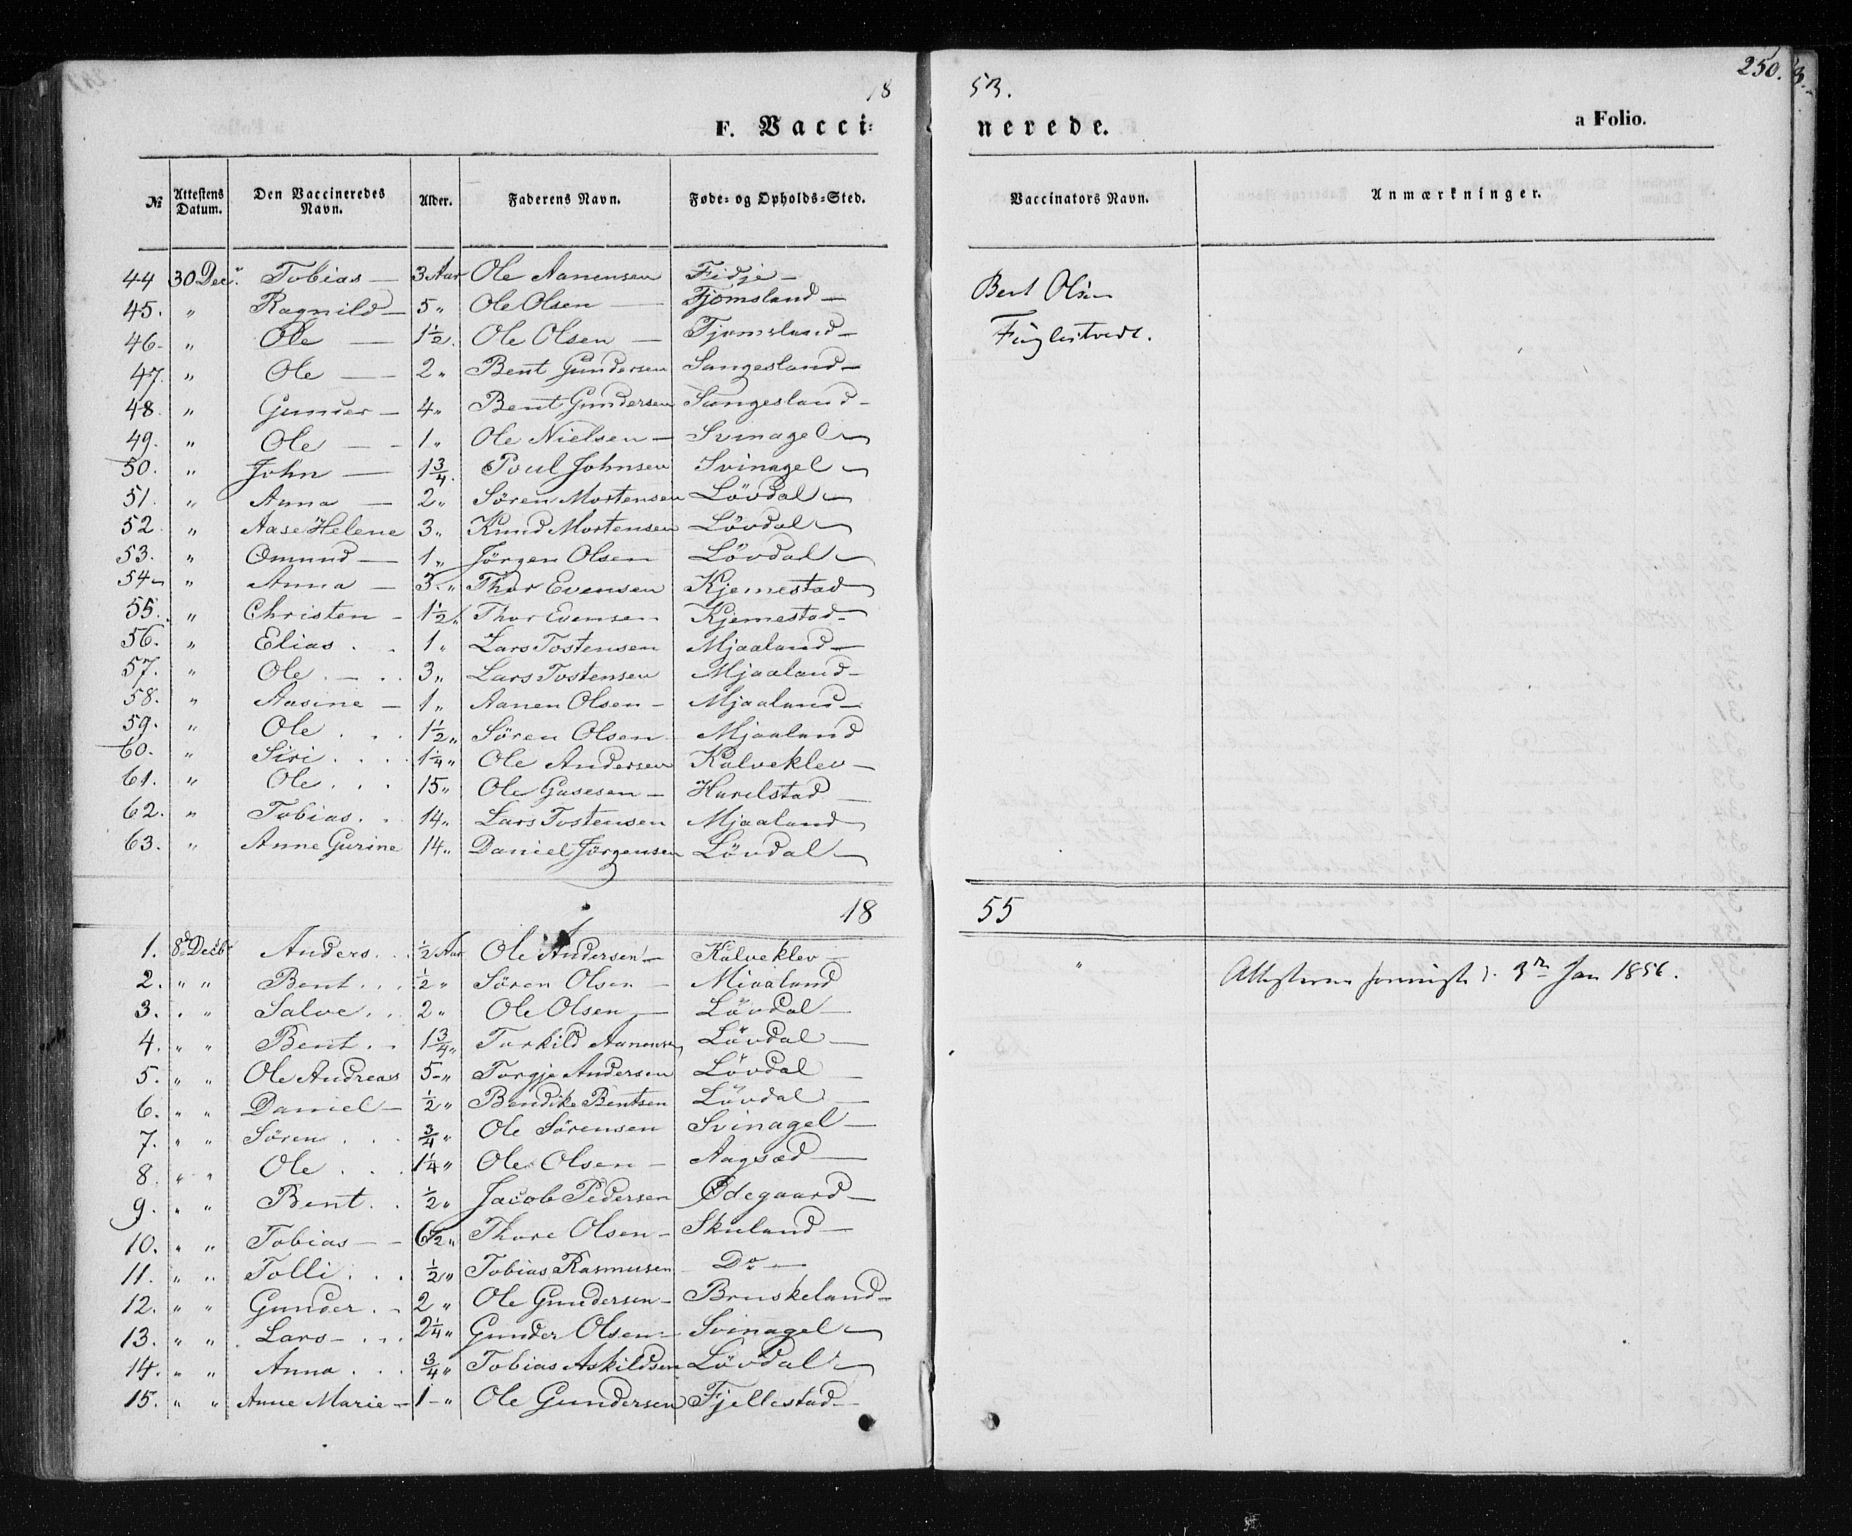 18 53. 250.
F. Vacci- nerede. a Folio.
№ Attestens Datum. Den Vaccineredes Navn. Alder. Faderens Navn. Føde- og Opholds-Sted. Vaccinators Navn. Anmærkninger.
44 30 Decr. Tobias — 3 Aar Ole Aanensen Fidje — Bent Olsen
45. „ Ragnild — 5 „ Ole Olsen — Fjomsland —
46. „ Ole — 1½ „ Ole Olsen — Fjomsland — Fuglestvedt.
47. „ Ole — 2 „ Bent Gundersen Sangesland —
48. „ Gunder — 4 „ Bent Gundersen Sangesland —
49. „ Ole — 1 „ Ole Nielsen — Svinagel —
50. „ John — 1¾ „ Poul Johnsen Svinagel —
51. „ Anna — 2 „ Sören Mortensen Lövdal —
52 „ Aase Helene 3 „ Knud Mortensen Lövdal —
53. „ Omund — 1 „ Jörgen Olsen Lövdal —
54 „ Anna — 3 „ Thor Evensen Kjemestad
55. „ Christen — 1½ „ Thor Evensen Kjemestad —
56. „ Elias . . 1 „ Lars Tostensen Mjaaland —
57. „ Ole . — . 3 „ Lars Tostensen Mjaaland —
58. „ Aasine — 1 „ Aanen Olsen — Mjaaland —
59. „ Ole . . . 1½ „ Sören Olsen Mjaaland
60. „ Siri . . . 1¼ „ Ole Andersen Kalveklev —
61. „ Ole . . . 15 „ Ole Gasesen — Harelstad —
62. „ Tobias . . 14 „ Lars Tostensen Mjaaland
63. „ Anne Gurine 14 „ Daniel Jörgensen Lövdal —
18 55
1. 8de Decbr Anders . . ½ Aar Ole Andersen — Kalveklev —
2. „ „ Bent . . . ½ „ Sören Olsen — Miaaland „ 3die Jan 1856.
3. „ „ Salve . . 2 „ Ole Olsen — Lövdal —
4. „ „ Bent . . 1¾ „ Torkild Aanensen Lövdal —
5. „ „ Ole Andreas 5 — „ Torgje Andersen Lövdal —
6. „ „ Daniel — ½ „ Bendike Bentsen Lövdal —
7. „ „ Sören . . . ¾ „ Ole Sörensen Svinagel —
8. „ „ Ole . . . 1¼ „ Ole Olsen — Aagsæd —
9. „ „ Bent . . ½ „ Jacob Pedersen Ødegaard —
10. „ „ Tobias — — 6½ „ Thore Olsen — Skuland —
11. „ „ Tolli . . . ½ „ Tobias Rasmusen Do —
12. „ „ Gunder . — 2 „ Ole Gundersen — Bruskeland —
13. „ „ Lars — . . . 2¼ „ Gunder Olsen — Svinagel —
14. „ „ Anna . . . ¾ „ Tobias Askildsen Lövdal —
15. „ „ Anne Marie — 1 — „ Ole Gundersen Fjellestad —